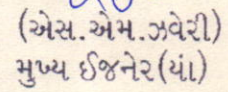 (એસ.એમ.ઝવેરી)
મુખ્ય ઈજનેર(યાં)